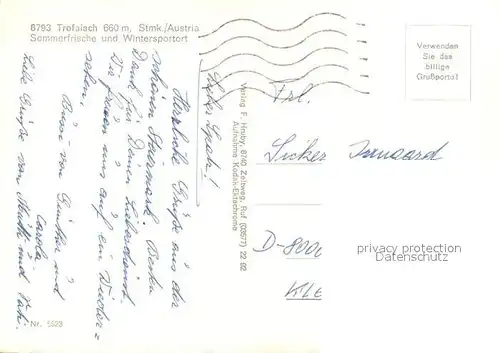 8793 Trofaiach 660 m, Stmk./Austria
Sommerfrische und Wintersportort
Verwenden
Sie das
billige
Großporto!
Herzliche Grüße aus der
schönen Steiermark. Besten
Dank für Deinen
Wir freuen uns auf ein Wieder=
sehen.
von Günther und
Carola
Liebe Grüße von Mutti und Vati.
Verlag F. Hruby, 8740 Zeltweg, Ruf (03577) 22 82
Aufnahme Kodak-Ektachrome
Frl.
Sicker Irmgard
D-8000
privacy protection
Datenschutz
Nr. 5523